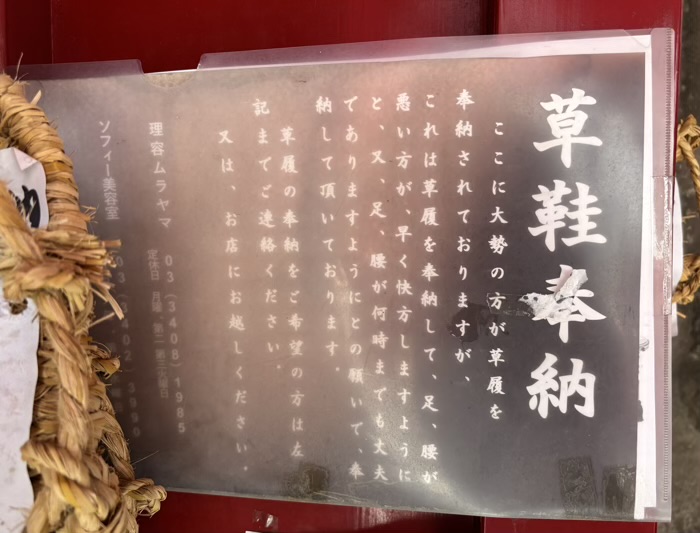 草鞋奉納
ここに大勢の方が草履を
奉納されておりますが、
これは草履を奉納して、足、腰が
悪い方が、早く快方しますように
と、又、足、腰が何時までも丈夫
でありますようにとの願いで、奉
納して頂いております。
草履の奉納をご希望の方は左
記までご連絡ください。
又は、お店にお越しください。
理容ムラヤマ 03(3408)1985
定休日 月曜 第二 第三火曜日
ソフィー美容室 03(3402)3990
納